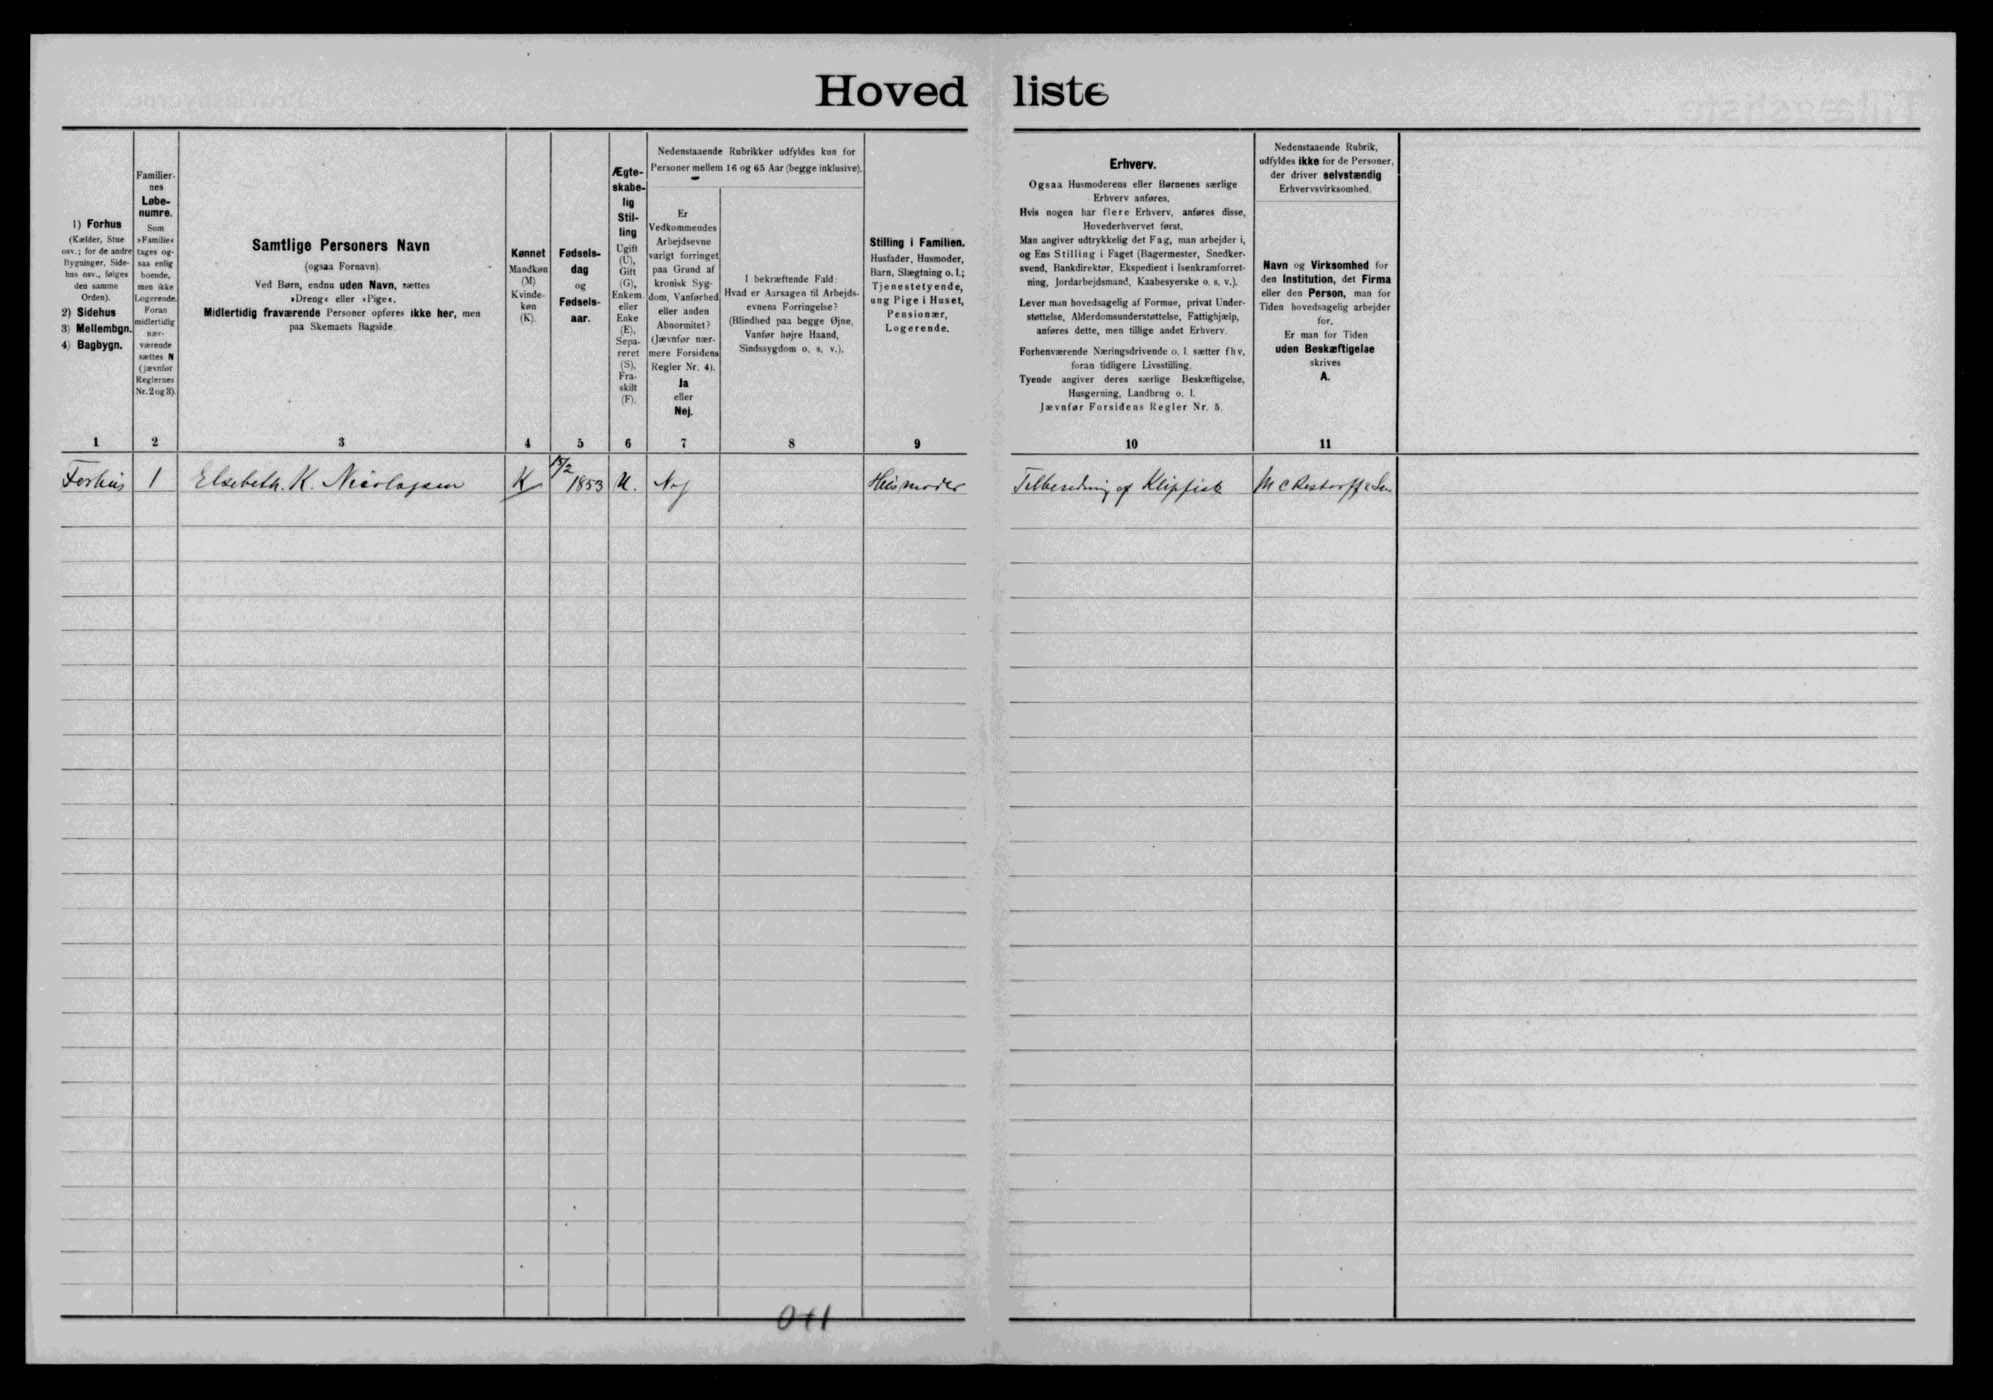 Hovedliste
1) Forhus
(Kælder, Stue
osv.; for de andre
Bygninger, Side-
hus osv., følges
den samme
Orden).
2) Sidehus
3) Mellembgn.
4) Bagbygn.
Familier-
nes
Løbe-
numre.
Som
»Familie«
tages og-
saa enlig
boende,
men ikke
Logerende.
Foran
midlertidig
nær-
værende
sættes N
(jævnfør
Reglernes
Nr. 2 og 3).
Samtlige Personers Navn
(ogsaa Fornavn).
Ved Børn, endnu uden Navn, sættes
»Dreng« eller »Pige«.
Midlertidig fraværende Personer opføres ikke her, men
paa Skemaets Bagside.
Kønnet
Mandkøn
(M)
Kvinde-
køn
(K).
Fødsels-
dag
og
Fødsels-
aar.
Ægte-
skabe-
lig
Stil-
ling
Ugift
(U),
Gift
(G),
Enkem.
eller
Enke
(E),
Sepa-
reret
(S),
Fra-
skilt
(F).
Nedenstaaende Rubrikker udfyldes kun for
Personer mellem 16 og 65 Aar (begge inklusive).
Er
Vedkommendes
Arbejdsevne
varigt forringet
paa Grund af
kronisk Syg-
dom, Vanførhed
eller anden
Abnormitet?
(Jævnfør nær-
mere Forsidens
Regler Nr. 4).
Ja
eller
Nej.
I bekræftende Fald:
Hvad er Aarsagen til Arbejds-
evnens Forringelse?
(Blindhed paa begge Øjne,
Vanfør højre Haand,
Sindssygdom o. s. v.).
Stilling i Familien.
Husfader, Husmoder,
Barn, Slægtning o. l.;
Tjenestetyende,
ung Pige i Huset,
Pensionær,
Logerende.
Erhverv.
Ogsaa Husmoderens eller Børnenes særlige
Erhverv anføres.
Hvis nogen har flere Erhverv, anføres disse,
Hovederhvervet først.
Man angiver udtrykkelig det Fag, man arbejder i,
og Ens Stilling i Faget (Bagermester, Snedker-
svend, Bankdirektør, Ekspedient i Isenkramforret-
ning, Jordarbejdsmand, Kaabesyerske o. s. v.).
Lever man hovedsagelig af Formue, privat Under-
støttelse, Alderdomsunderstøttelse, Fattighjælp,
anføres dette, men tillige andet Erhverv.
Forhenværende Næringsdrivende o. l. sætter fhv.
foran tidligere Livsstilling.
Tyende angiver deres særlige Beskæftigelse,
Husgerning, Landbrug o. l.
Jævnfør Forsidens Regler Nr. 5.
Nedenstaaende Rubrik,
udfyldes ikke for de Personer,
der driver selvstændig
Erhvervsvirksomhed.
Navn og Virksomhed for
den Institution, det Firma
eller den Person, man for
Tiden hovedsagelig arbejder
for.
Er man for Tiden
uden Beskæftigelse
skrives
A.
1 2 3 4 5 6 7 8 9 10 11
Forhus 1 Elsebeth. K. Nicolajsen K 15/2 1853 U. Nej Husmoder Tilberedning af Klipfisk M C Restorff & Søn